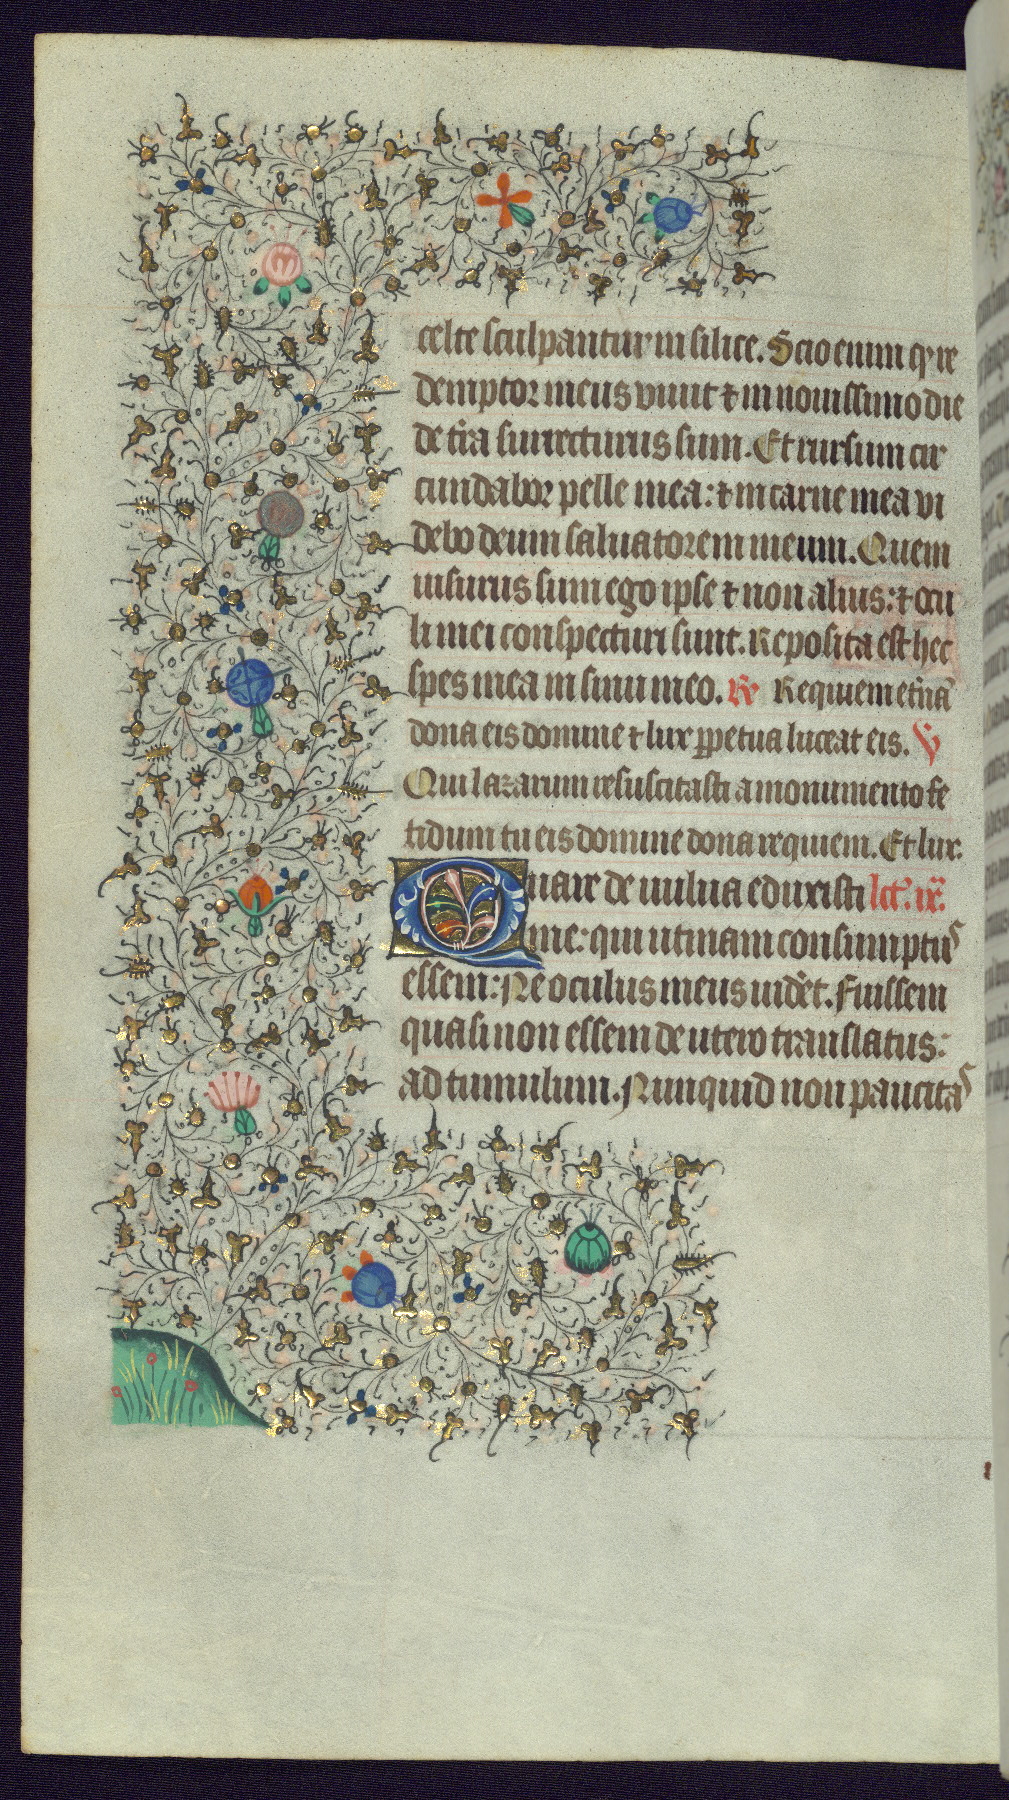 celte sculpantur in silice. Scio enim qͥ re
demptor meus viuit ⁊ in nouissimo die
de tr̃a surrecturus sum. Et rursum cir
cundabor pelle mea: ⁊ in carne mea vi
debo deum saluatorem meum. Quem
uisurus sum ego ipse ⁊ non alius: ⁊ ocu
li mei conspecturi sunt. Reposita est hec
spes mea in sinu meo. R̃ Requiem et̃nã
dona eis domine ⁊ lux ꝑpetua luceat eis. V̸
Qui lazarum resuscitasti a monumento fe
tidum tu eis domine dona requiem. Et lux.
Quare de uulua eduxisti lcc̃. ix.
me: qui utinam consumptus
essem: Ne oculus meus uidẽt. Fuissem
quasi non essem de utero translatus:
ad tumulum. Nunquid non paucitas